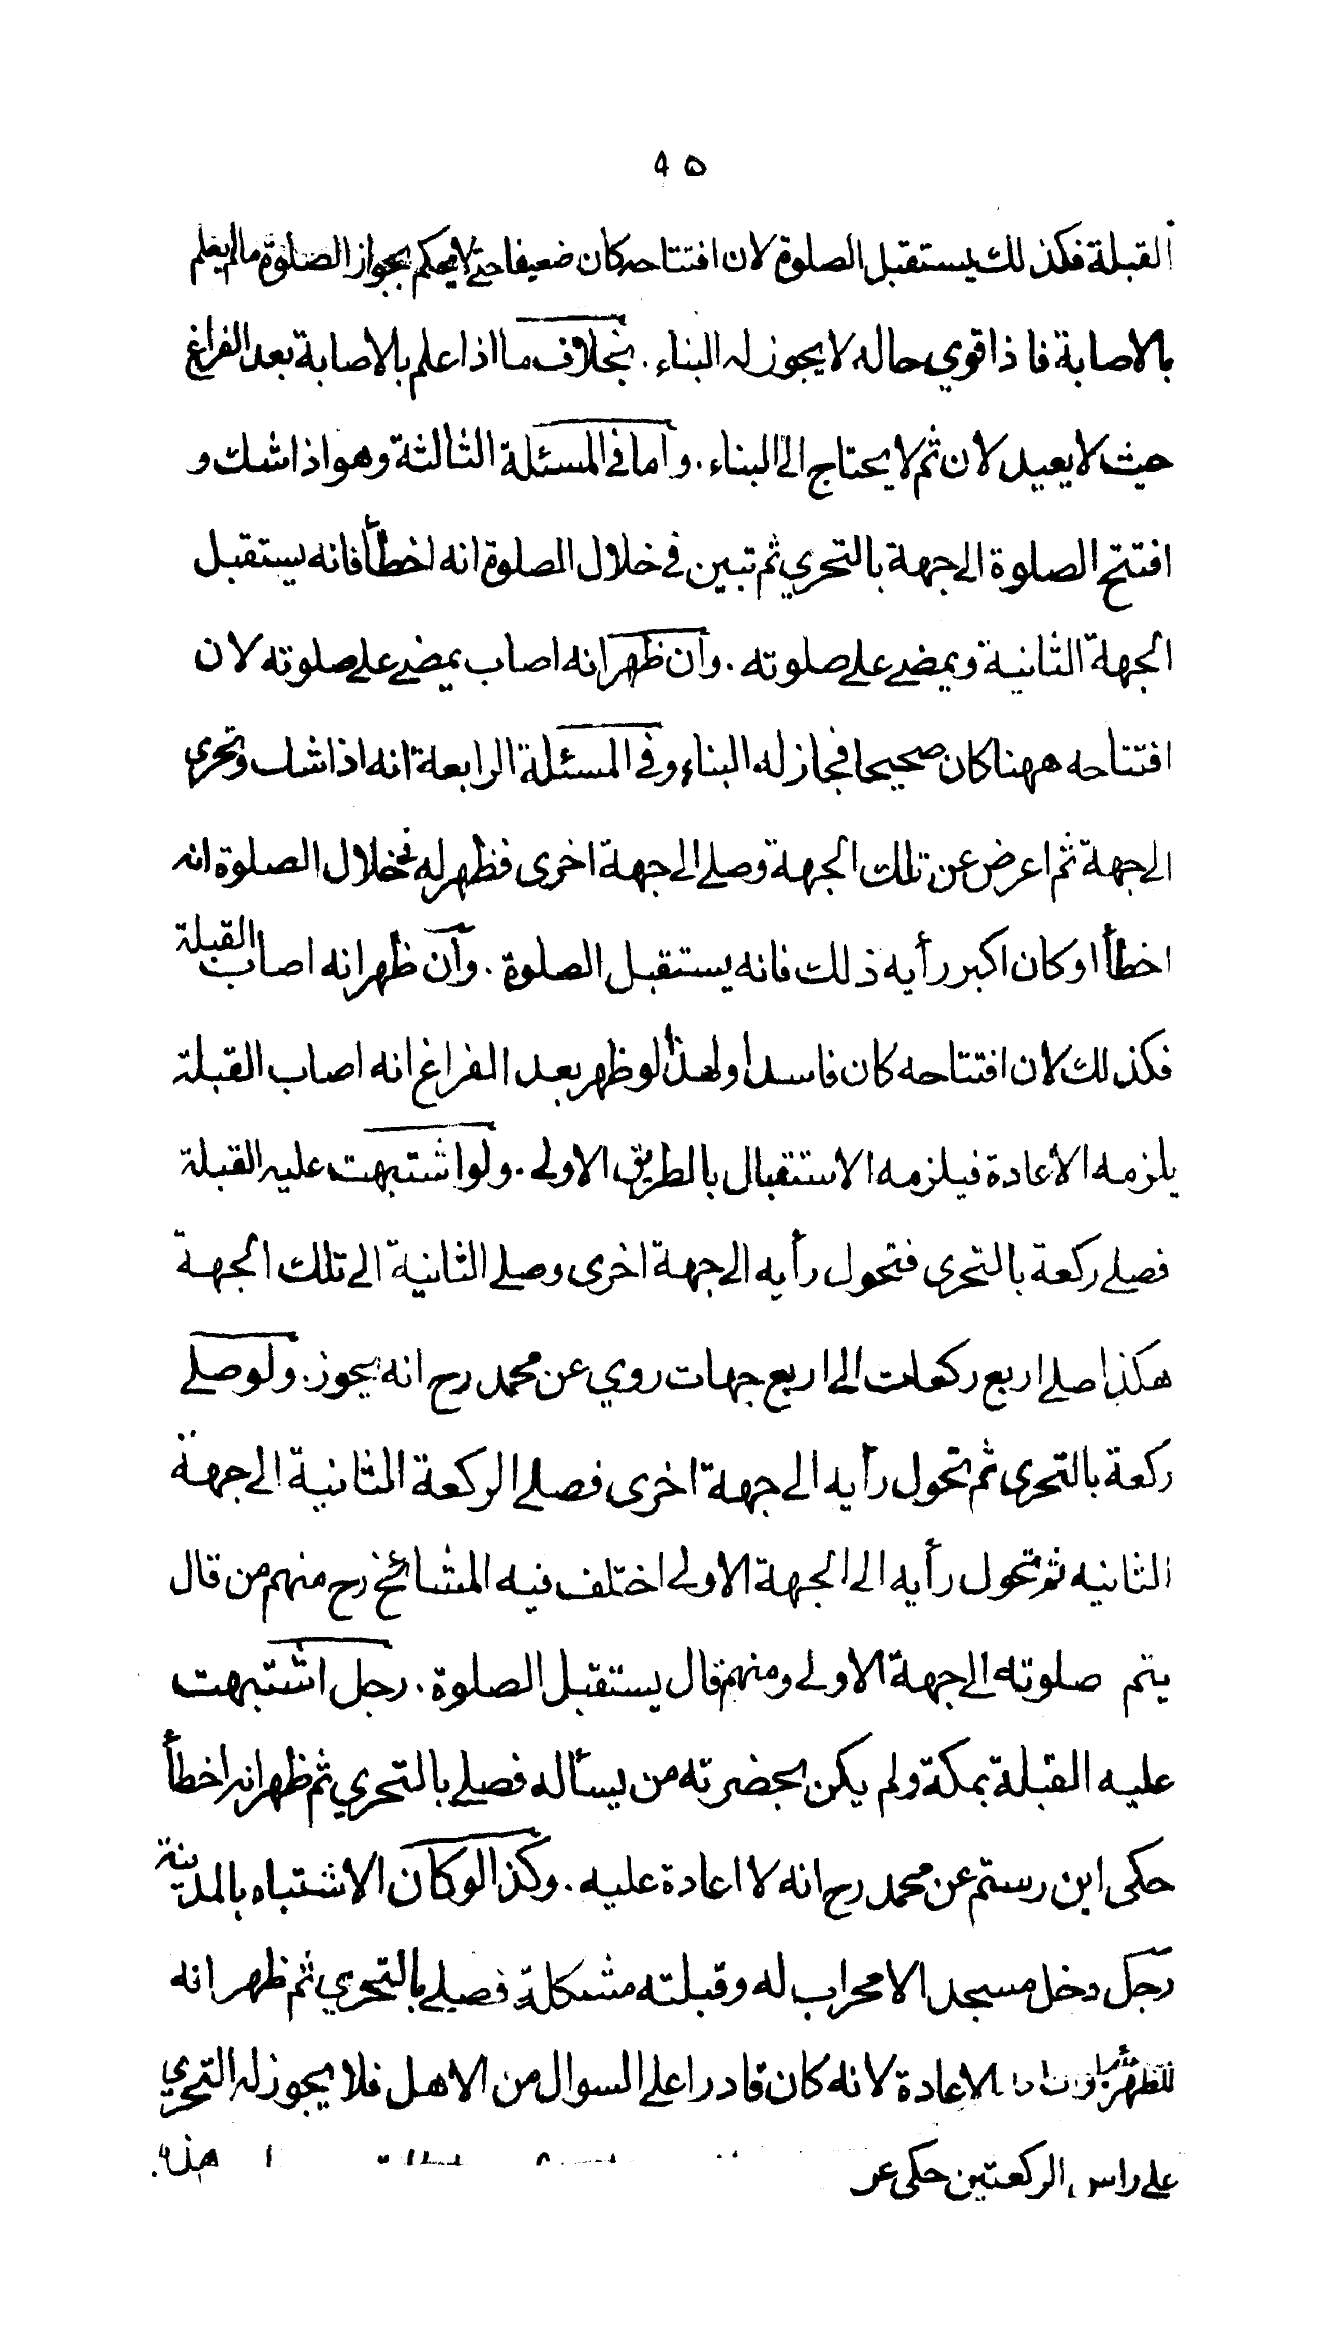 ٩٥
القبلة فكذلك يستقبل الصلوة لان افتتاحه كان ضعيفا حتى لا يحكم بجواز الصلوة مالم يعلم
بالاصابة فاذا قوي حاله لا يجوز له البناء . بخلاف ما اذا علم بالاصابة بعد الفراغ
حيث لا يعيد لان ثم لا يحتاج الى البناء . واما فى المسئلة الثالثة وهو اذا شك و
افتتح الصلوة الى جهة بالتحري ثم تبين في خلال الصلوة انه اخطأ فانه يستقبل
الجهة الثانية ويمضى على صلوته . وان ظهر انه اصاب يمضى على صلوته لان
افتتاحه ههنا كان صحيحا فجاز له البناء وفى المسئلة الرابعة انه اذا شك وتحرى
الى جهة ثم اعرض عن تلك الجهة وصلى الى جهة اخرى فظهر له فى خلال الصلوة انه
اخطأ او كان اكبر رأيه ذلك فانه يستقبل الصلوة . وان ظهر انه اصاب القبلة
فكذلك لان افتتاحه كان فاسدا ولهذا لو ظهر بعد الفراغ انه اصاب القبلة
يلزمه الاعادة فيلزمه الاستقبال بالطريق الاولى . ولو اشتبهت عليه القبلة
فصلى ركعة بالتحرى فتحول رأيه الى جهة اخرى وصلى الثانية الى تلك الجهة
هكذا صلى اربع ركعات الى اربع جهات روي عن محمد رح انه يجوز . ولو صلى
ركعة بالتحرى ثم تحول رأيه الى جهة اخرى فصلى الركعة الثانية الى جهة
الثانيه ثم تحول رأيه الى الجهة الاولى اختلف فيه المشائخ رح منهم من قال
يتم صلوته الى جهة الاولى ومنهم قال يستقبل الصلوة . رجل اشتبهت
عليه القبلة بمكة ولم يكن بحضرته من يسأله فصلى بالتحري ثم ظهر انه اخطأ
حكى ابن رستم عن محمد رح انه لا اعادة عليه . وكذا لو كان الاشتباه بالمدينة
رجل دخل مسجد الامحراب له وقبلته مشكلة فصلى بالتحري ثم ظهر انه
الاعادة لانه كان قادرا على السوال من الاهل فلا يجوز له التحري
على راس الركعتين حكى عن